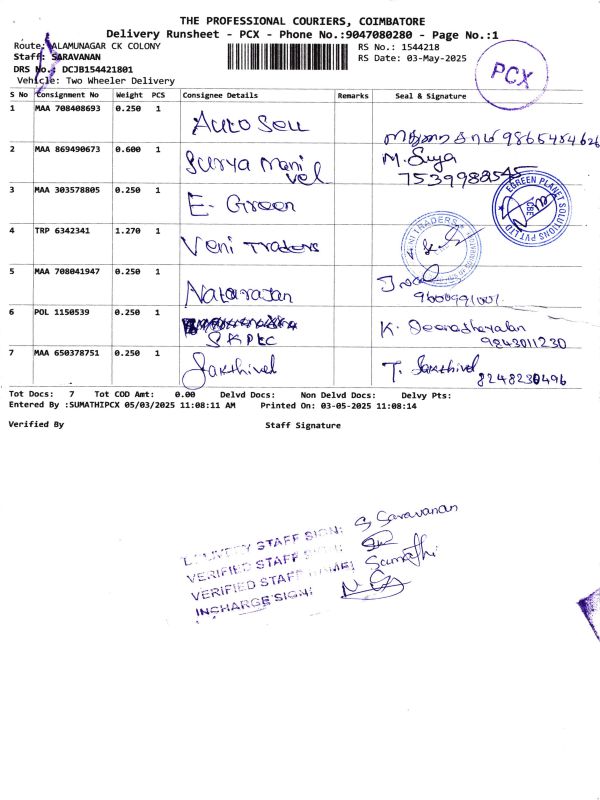 THE PROFESSIONAL COURIERS, COIMBATORE
Delivery Runsheet - PCX - Phone No.:9047080280 - Page No.:1
Route: ALAMUNAGAR CK COLONY
RS No.: 1544218
Staff: SARAVANAN
RS Date: 03-May-2025
DRS No.: DCJB154421801
Vehicle: Two Wheeler Delivery
PCX
S No Consignment No Weight PCS Consignee Details Remarks Seal & Signature
1 MAA 708408693 0.250 1 Auto Sell 9865484626
2 MAA 869490673 0.600 1 Surya Mani vel M. Suya 7539988545
3 MAA 303578805 0.250 1 E- Green
EGREEN PLANET SOLUTIONS PVT.LTD CBE
4 TRP 6342341 1.270 1 Veni Traders
TRADERS
5 MAA 708041947 0.250 1 Natarajan 9600991001
6 POL 1150539 0.250 1 K. Deenadhayalan 9243011230
7 MAA 650378751 0.250 1 Sakthivel T. Sakthivel 8248230496
Tot Docs: 7 Tot COD Amt: 0.00 Delvd Docs: Non Delvd Docs: Delvy Pts:
Entered By :SUMATHIPCX 05/03/2025 11:08:11 AM Printed On: 03-05-2025 11:08:14
Verified By Staff Signature
DELIVERY STAFF SIGN: S Saravanan
VERIFIED STAFF SIGN:
VERIFIED STAFF NAME: Sumathi
INCHARGE SIGN: